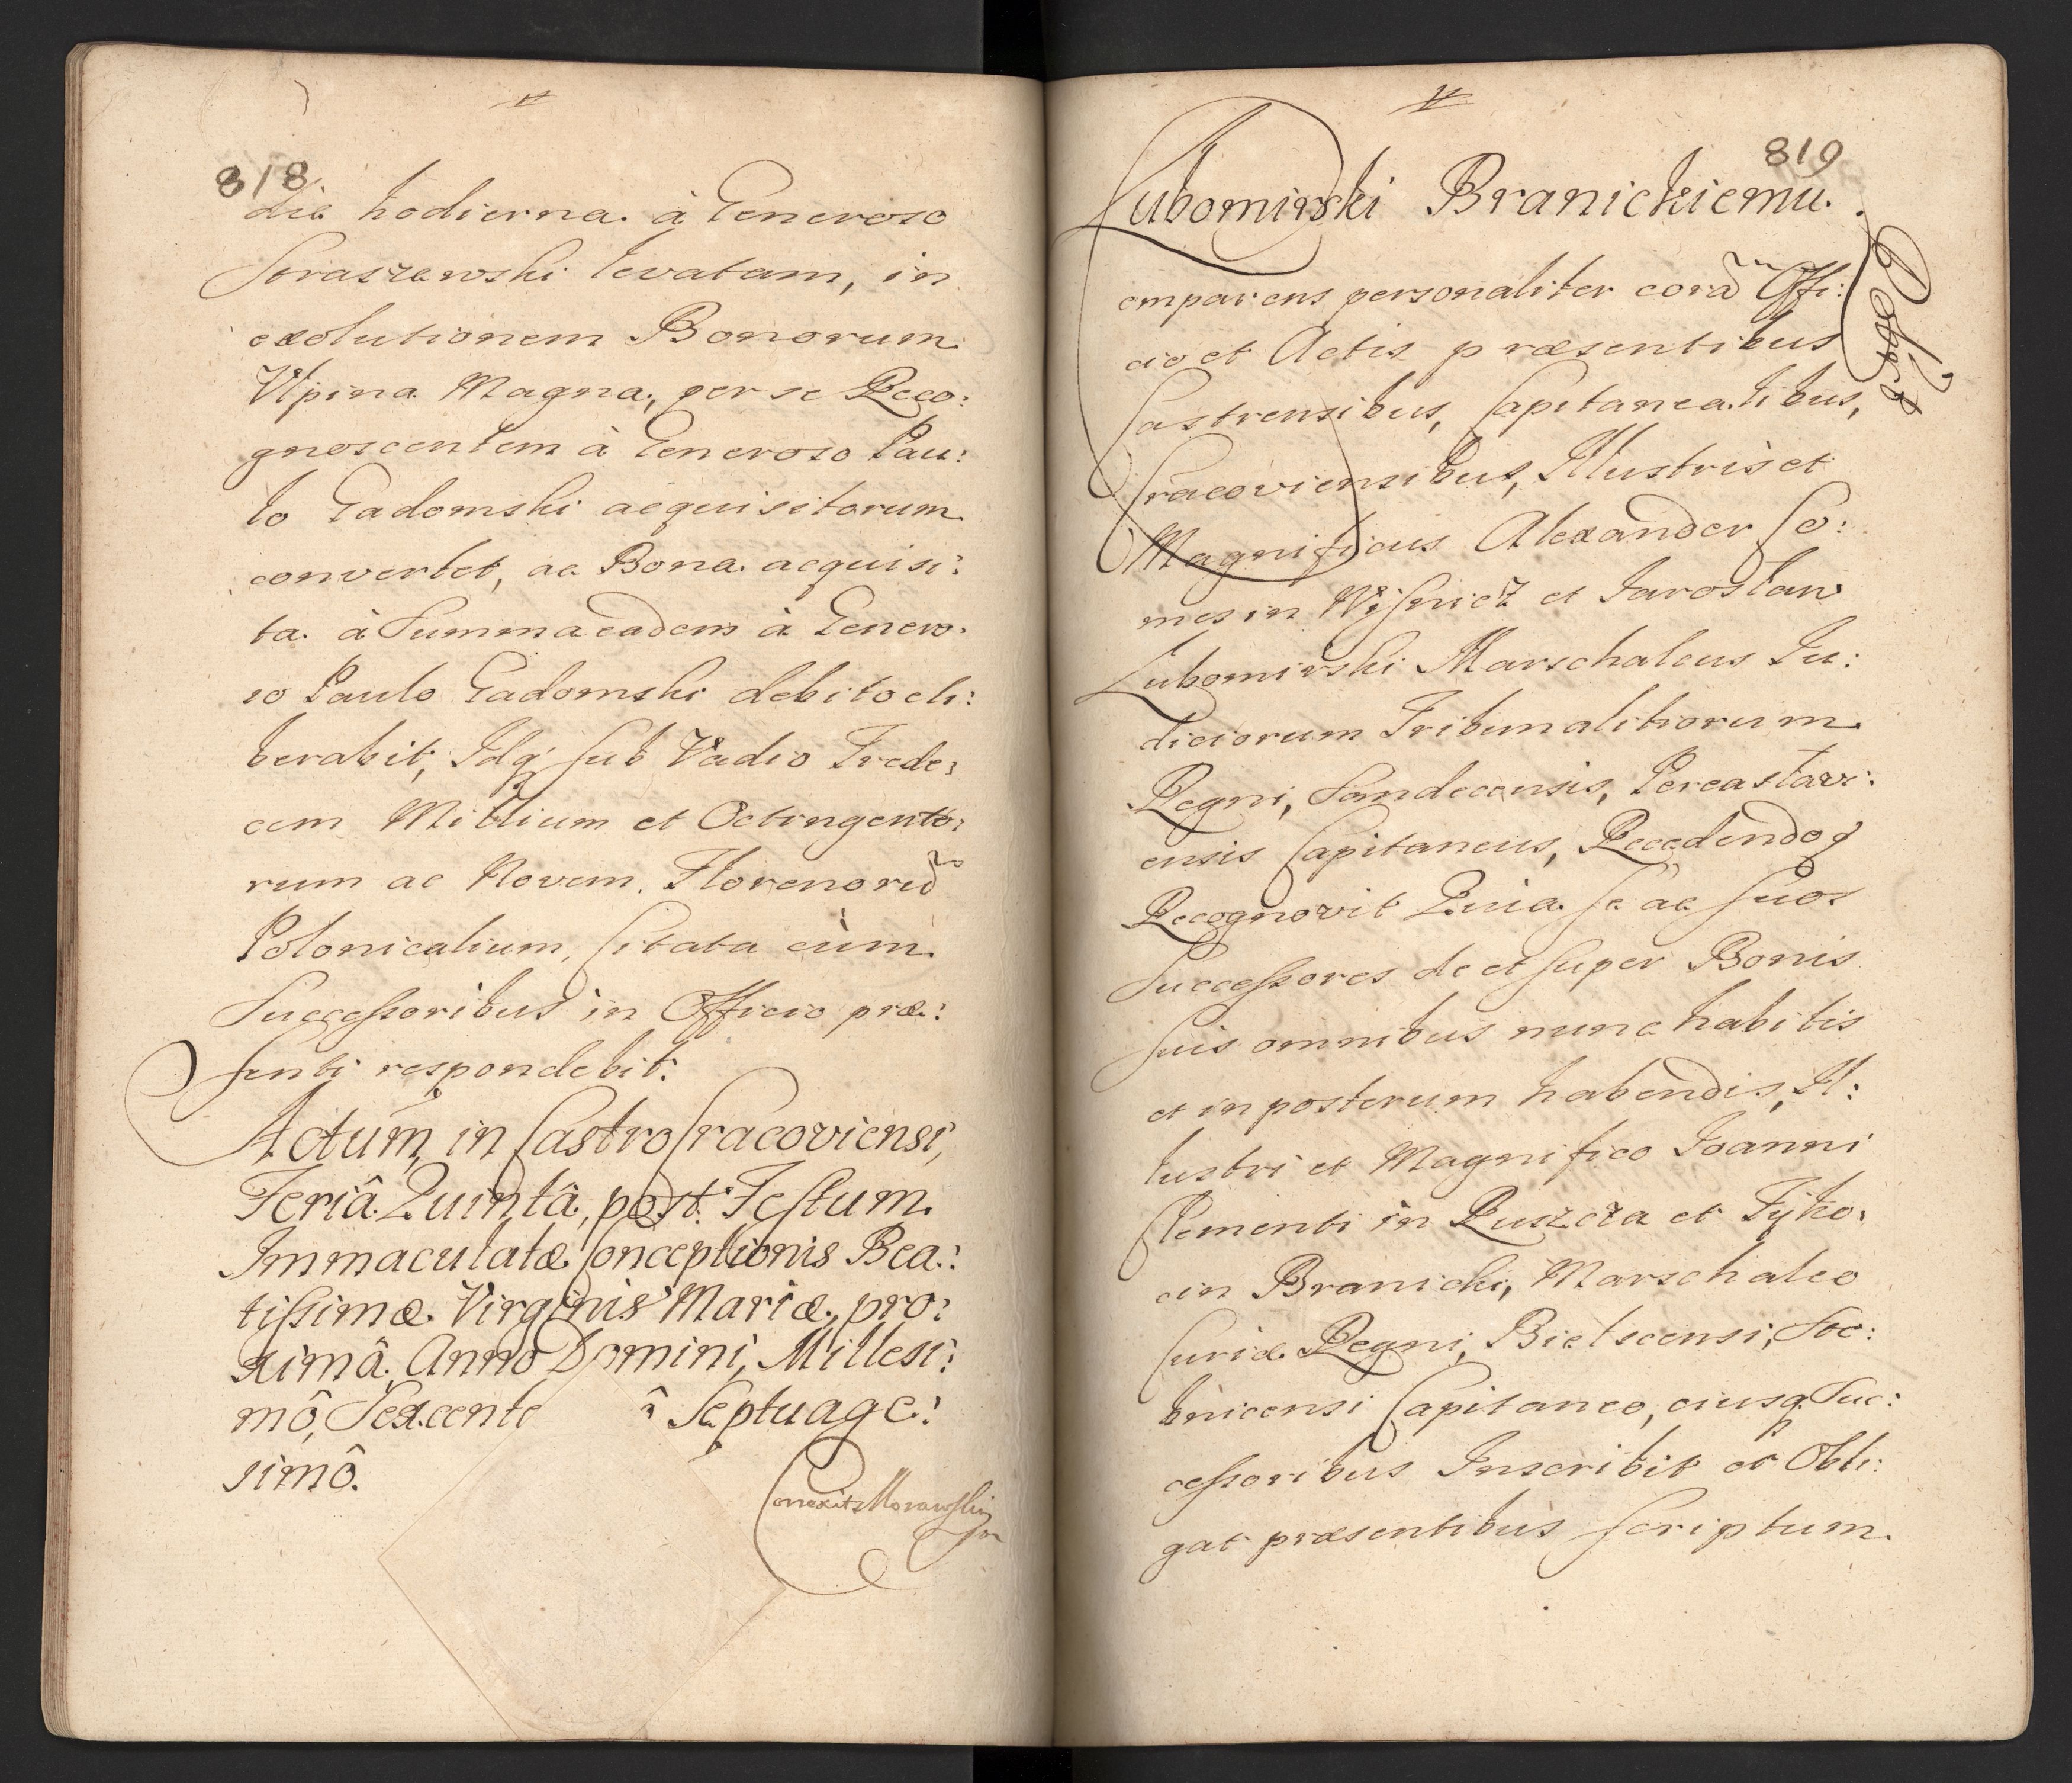 818
die hodierna à Generoso
Straszewski levatam, in
exolutionem Bonorum
Vlpina Magna, per se Reco:
gnoscentem à Generoso Pau:
lo Gadomski acquisitorum
convertet, ac Bona acquisi:
ta à Summa eadem à Genero:
so Paulo Gadomski debito eli:
berabit, Idq sub Vadio Trede:
cem Millium et Octingento:
rum ac Novem Florenorũ
Polonicalium, Citata cum
Successoribus in Officio præ:
senti respondebit.
Actum in Castro Cracoviensi,
Feriâ Quintâ, post Festum
Immaculatæ Conceptionis Bea:
tissimæ Virginis Mariæ, pro:
ximâ, Anno Domini, Millesi:
mô, Sexcente ô Septuage:
simô.
Correxit Morawski
819
Lubomirski Branickiemu.
omparens personaliter corã Offi:
cio et Actis præsentibus
Castrensibus, Capitanealibus,
Cracoviensibus, Illustris et
Magnificus Alexander Co:
mes in Wisnicz et Iaroslaw
Lubomirski Marschalcus Iu:
diciorum Tribunalitiorum
Regni, Sandecensis, Pereaslavi:
ensis Capitaneus, Recedendoq
Recognovit Quia se ac suos
Successores de et super Bonis
suis omnibus nunc habitis
et in posterum habendis, Il:
lustri et Magnifico Ioanni
Clementi in Ruszcza et Tyko:
cin Branicki, Marschalco
Curiæ Regni, Bielscensi, Sto:
bnicensi Capitaneo, eiusq Suc:
cessoribus Inscribit et Obli:
gat præsentibus scriptum